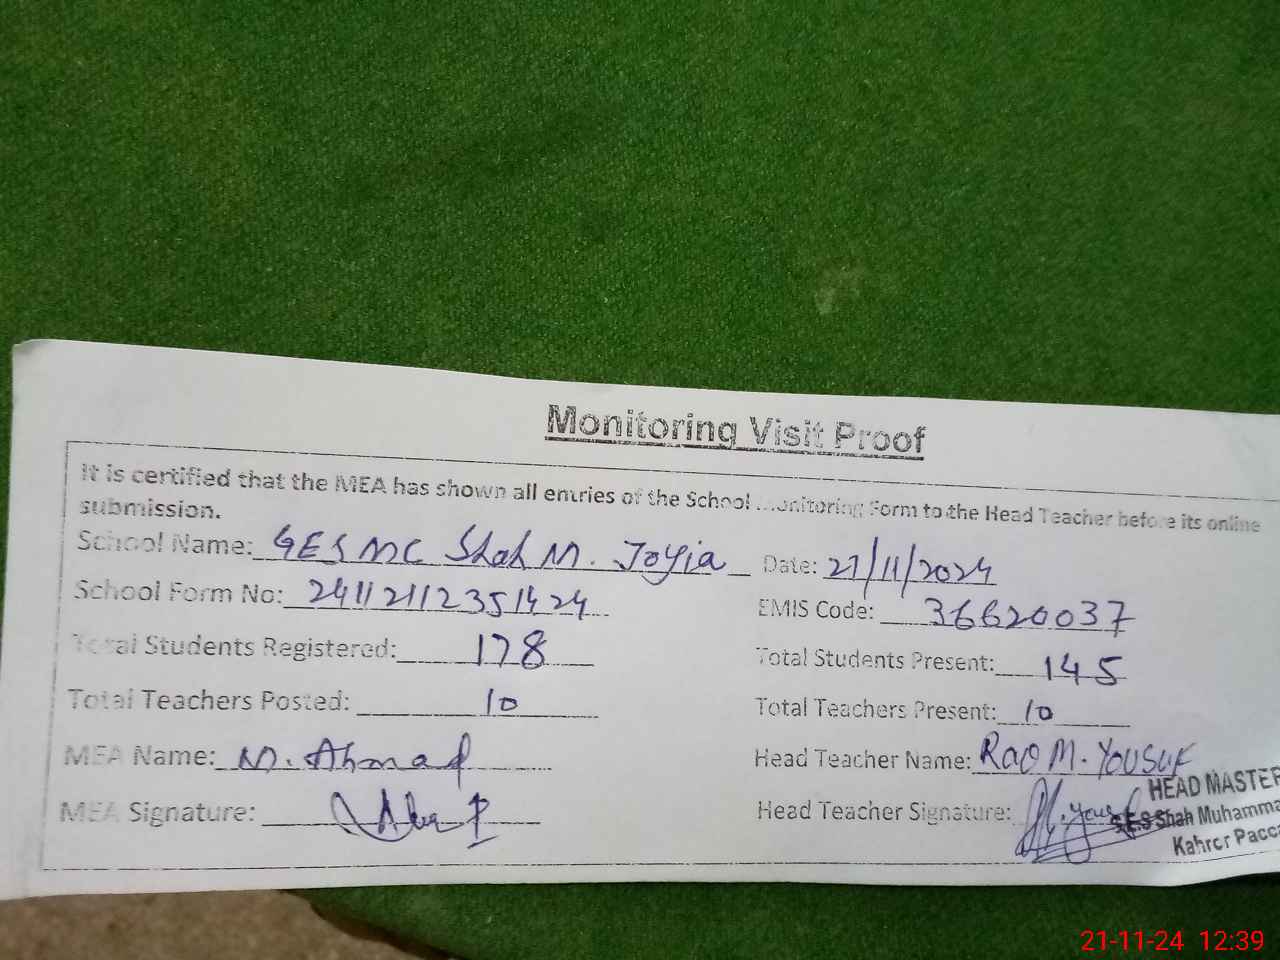 Monitoring Visit Proof
It is certified that the MEA has shown all entries of the School Monitoring Form to the Head Teacher before its online
submission.
School Name: GES MC Shah M. Joyia Date: 21/11/2024
School Form No: 24112112351424 EMIS Code: 36620037
Total Students Registered: 178 Total Students Present: 145
Total Teachers Posted: 10 Total Teachers Present: 10
MEA Name: M. Ahmad Head Teacher Name: Rao M. Yousuf
MEA Signature: Head Teacher Signature:
HEAD MASTER
G.E.S Shah Muhamma
Kahror Pacca
21-11-24 12:39